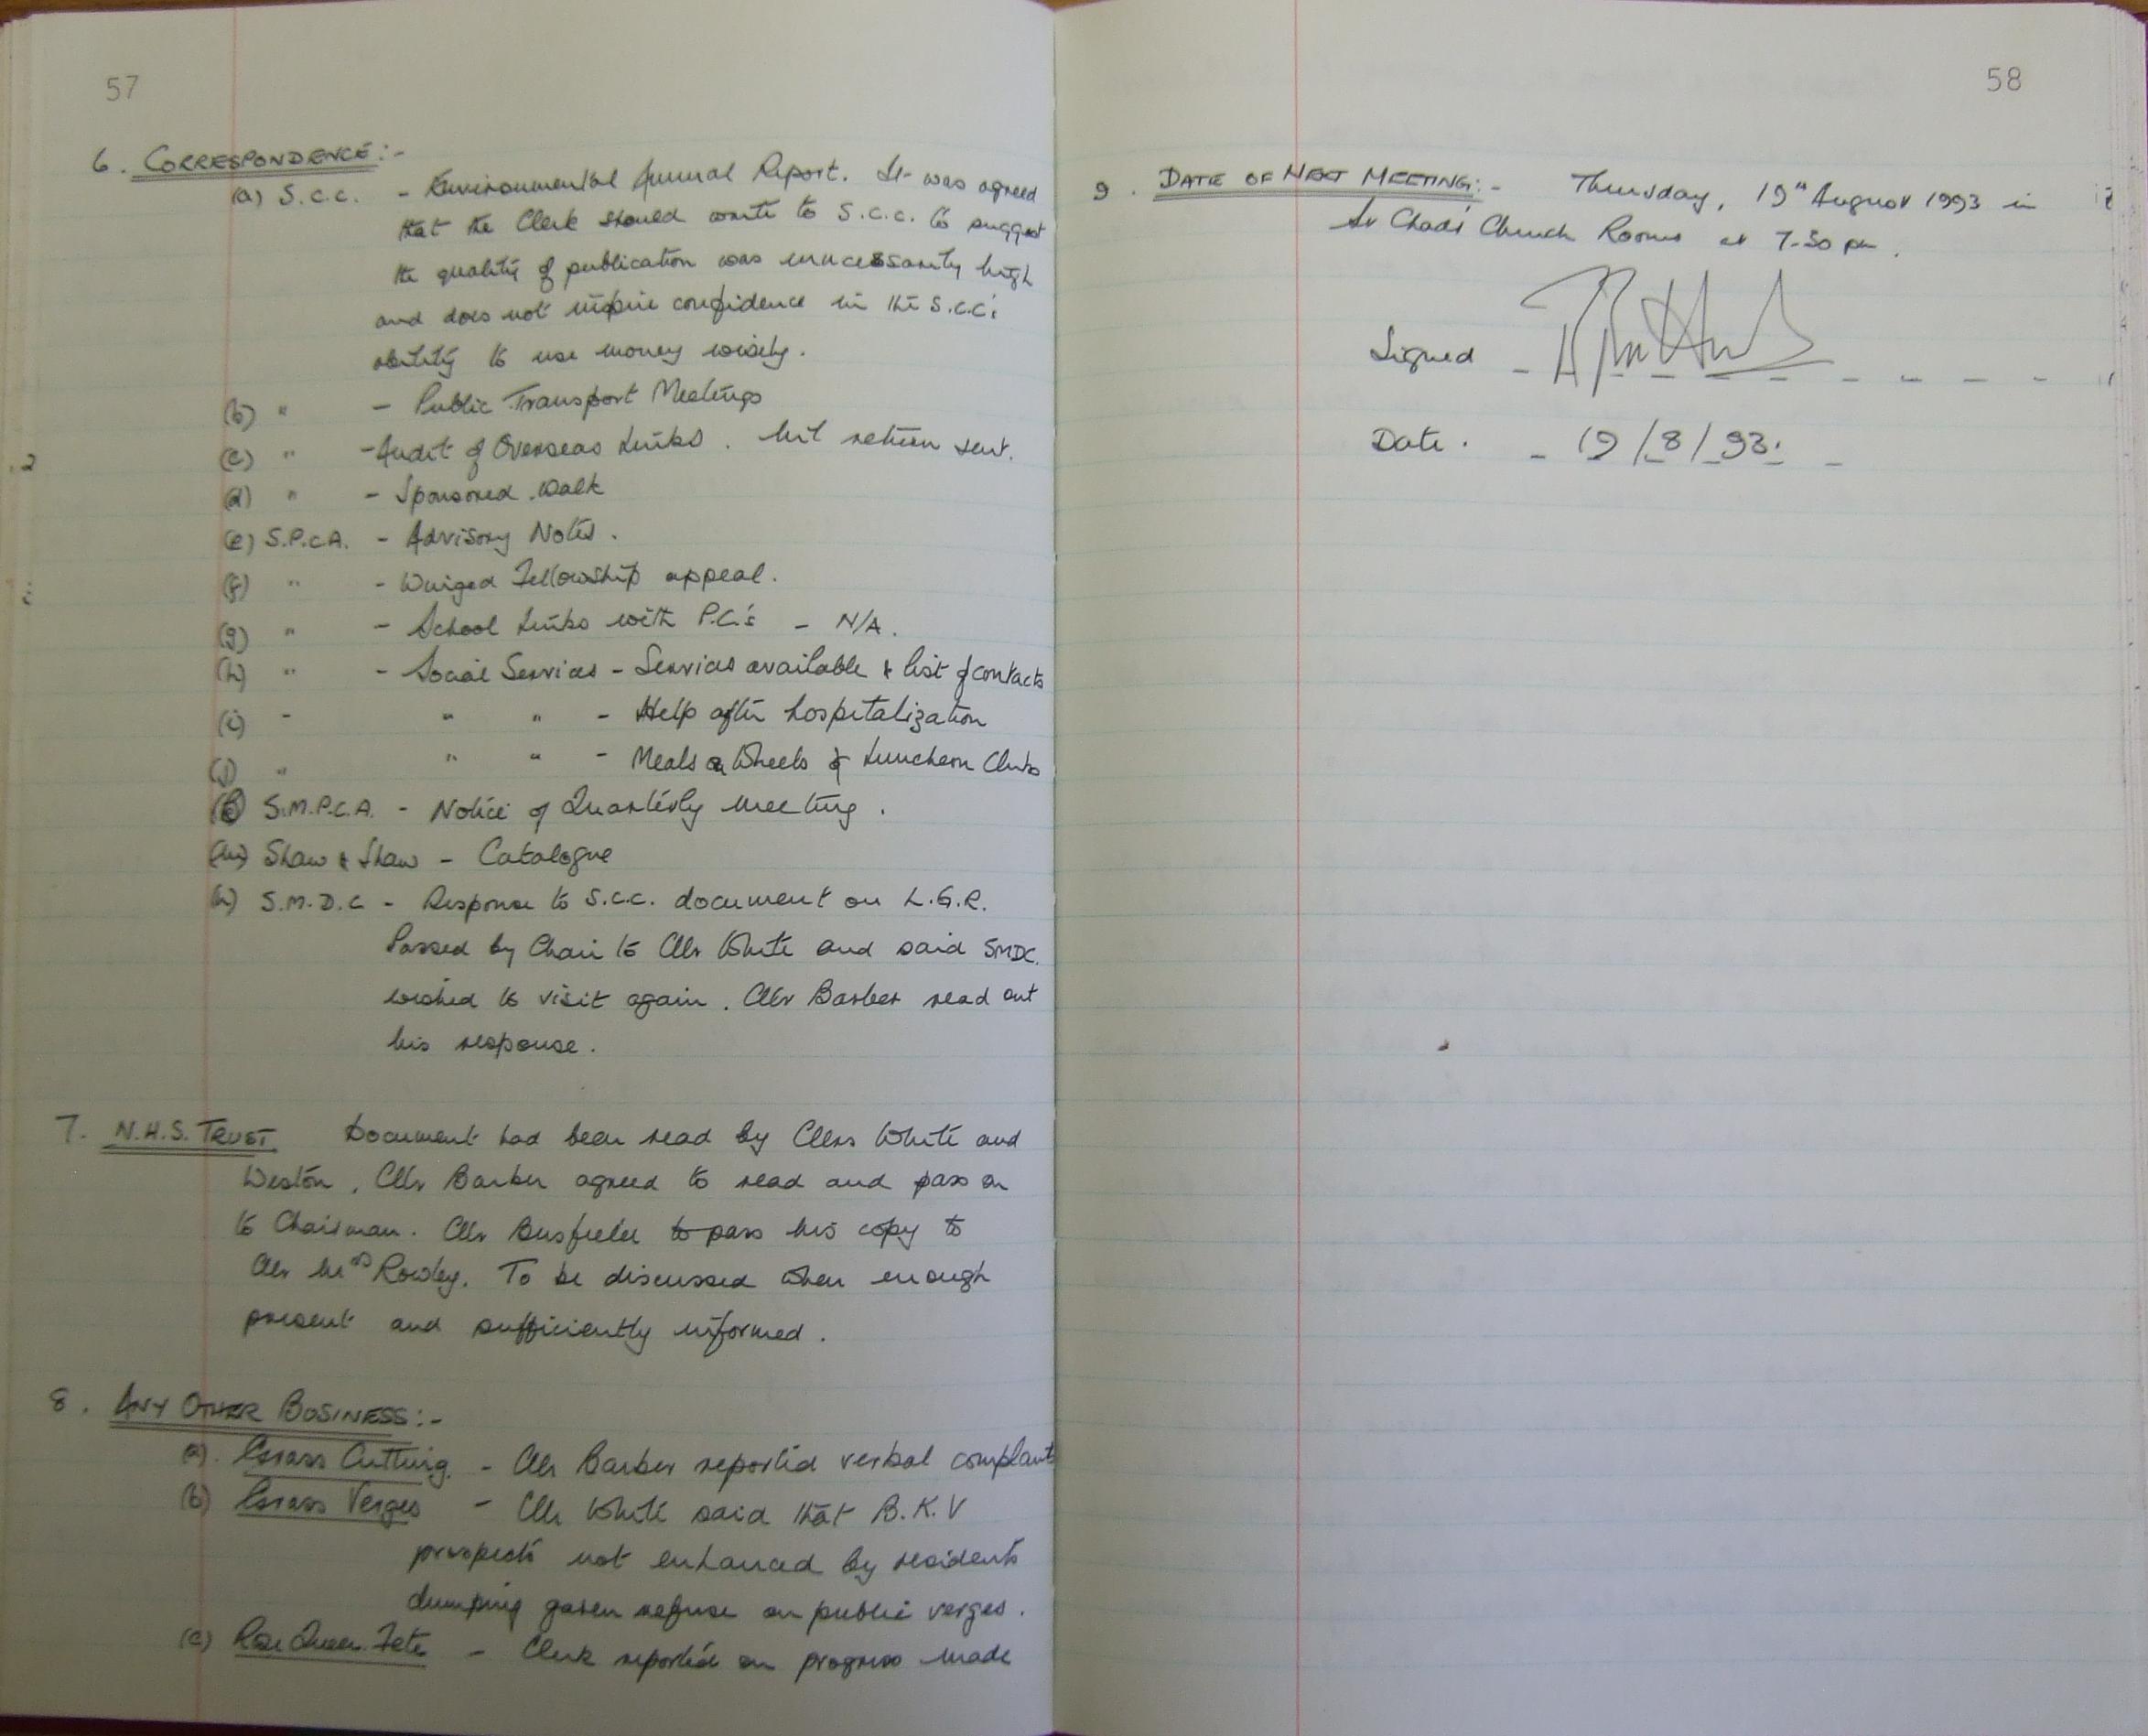 57
6. CORRESPONDENCE:-
(a) S.C.C. - Environmental Annual Report. It was agreed
that the Clerk should write to S.C.C. to suggest
the quality of publication was unnecessarily high
and does not inspire confidence in the S.C.C.'s
ability to use money wisely.
(b) " - Public Transport Meetings
(c) " - Audit of Overseas Links. Nil return sent.
(d) " - Sponsored Walk
(e) S.P.C.A. - Advisory Notes.
(f) " - Winged Fellowship appeal.
(g) " - School Links with P.C.'s - N/A.
(h) " - Social Services - Services available & list of contacts
(i) " " " - Help after hospitalization
(j) " " " - Meals on Wheels & Luncheon Clubs
S.M.P.C.A. - Notice of Quarterly Meeting.
(m) Shaw & Shaw - Catalogue
(n) S.M.D.C - Response to S.C.C. document on L.G.R.
Passed by Chair to Cllr White and said SMDC.
wished to visit again. Cllr Barber read out
his response.
7. N.H.S. TRUST Document had been read by Cllrs White and
Weston. Cllr Barber agreed to read and pass on
to Chairman. Cllr Busfield to pass his copy to
Cllr Mrs Rowley. To be discussed when enough
present and sufficiently informed.
8. ANY OTHER BUSINESS:-
(a). Grass Cutting. - Cllr Barber reported verbal complaints
(b) Grass Verges - Cllr White said that B.K.V
prospects not enhanced by residents
dumping garen refuse on public verges.
(c) Rose Queen Fete - Clerk reported on progress made
58
9. DATE OF NEXT MEETING:- Thursday, 19th August 1993 in
St Chad's Church Rooms at 7-30 pm.
Signed
Date. 19/8/93.